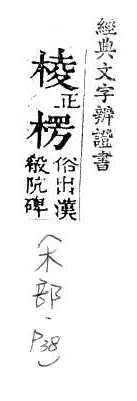 經典文字辨證書
棱正楞俗出漢
殽阬碑
(木部·P38)